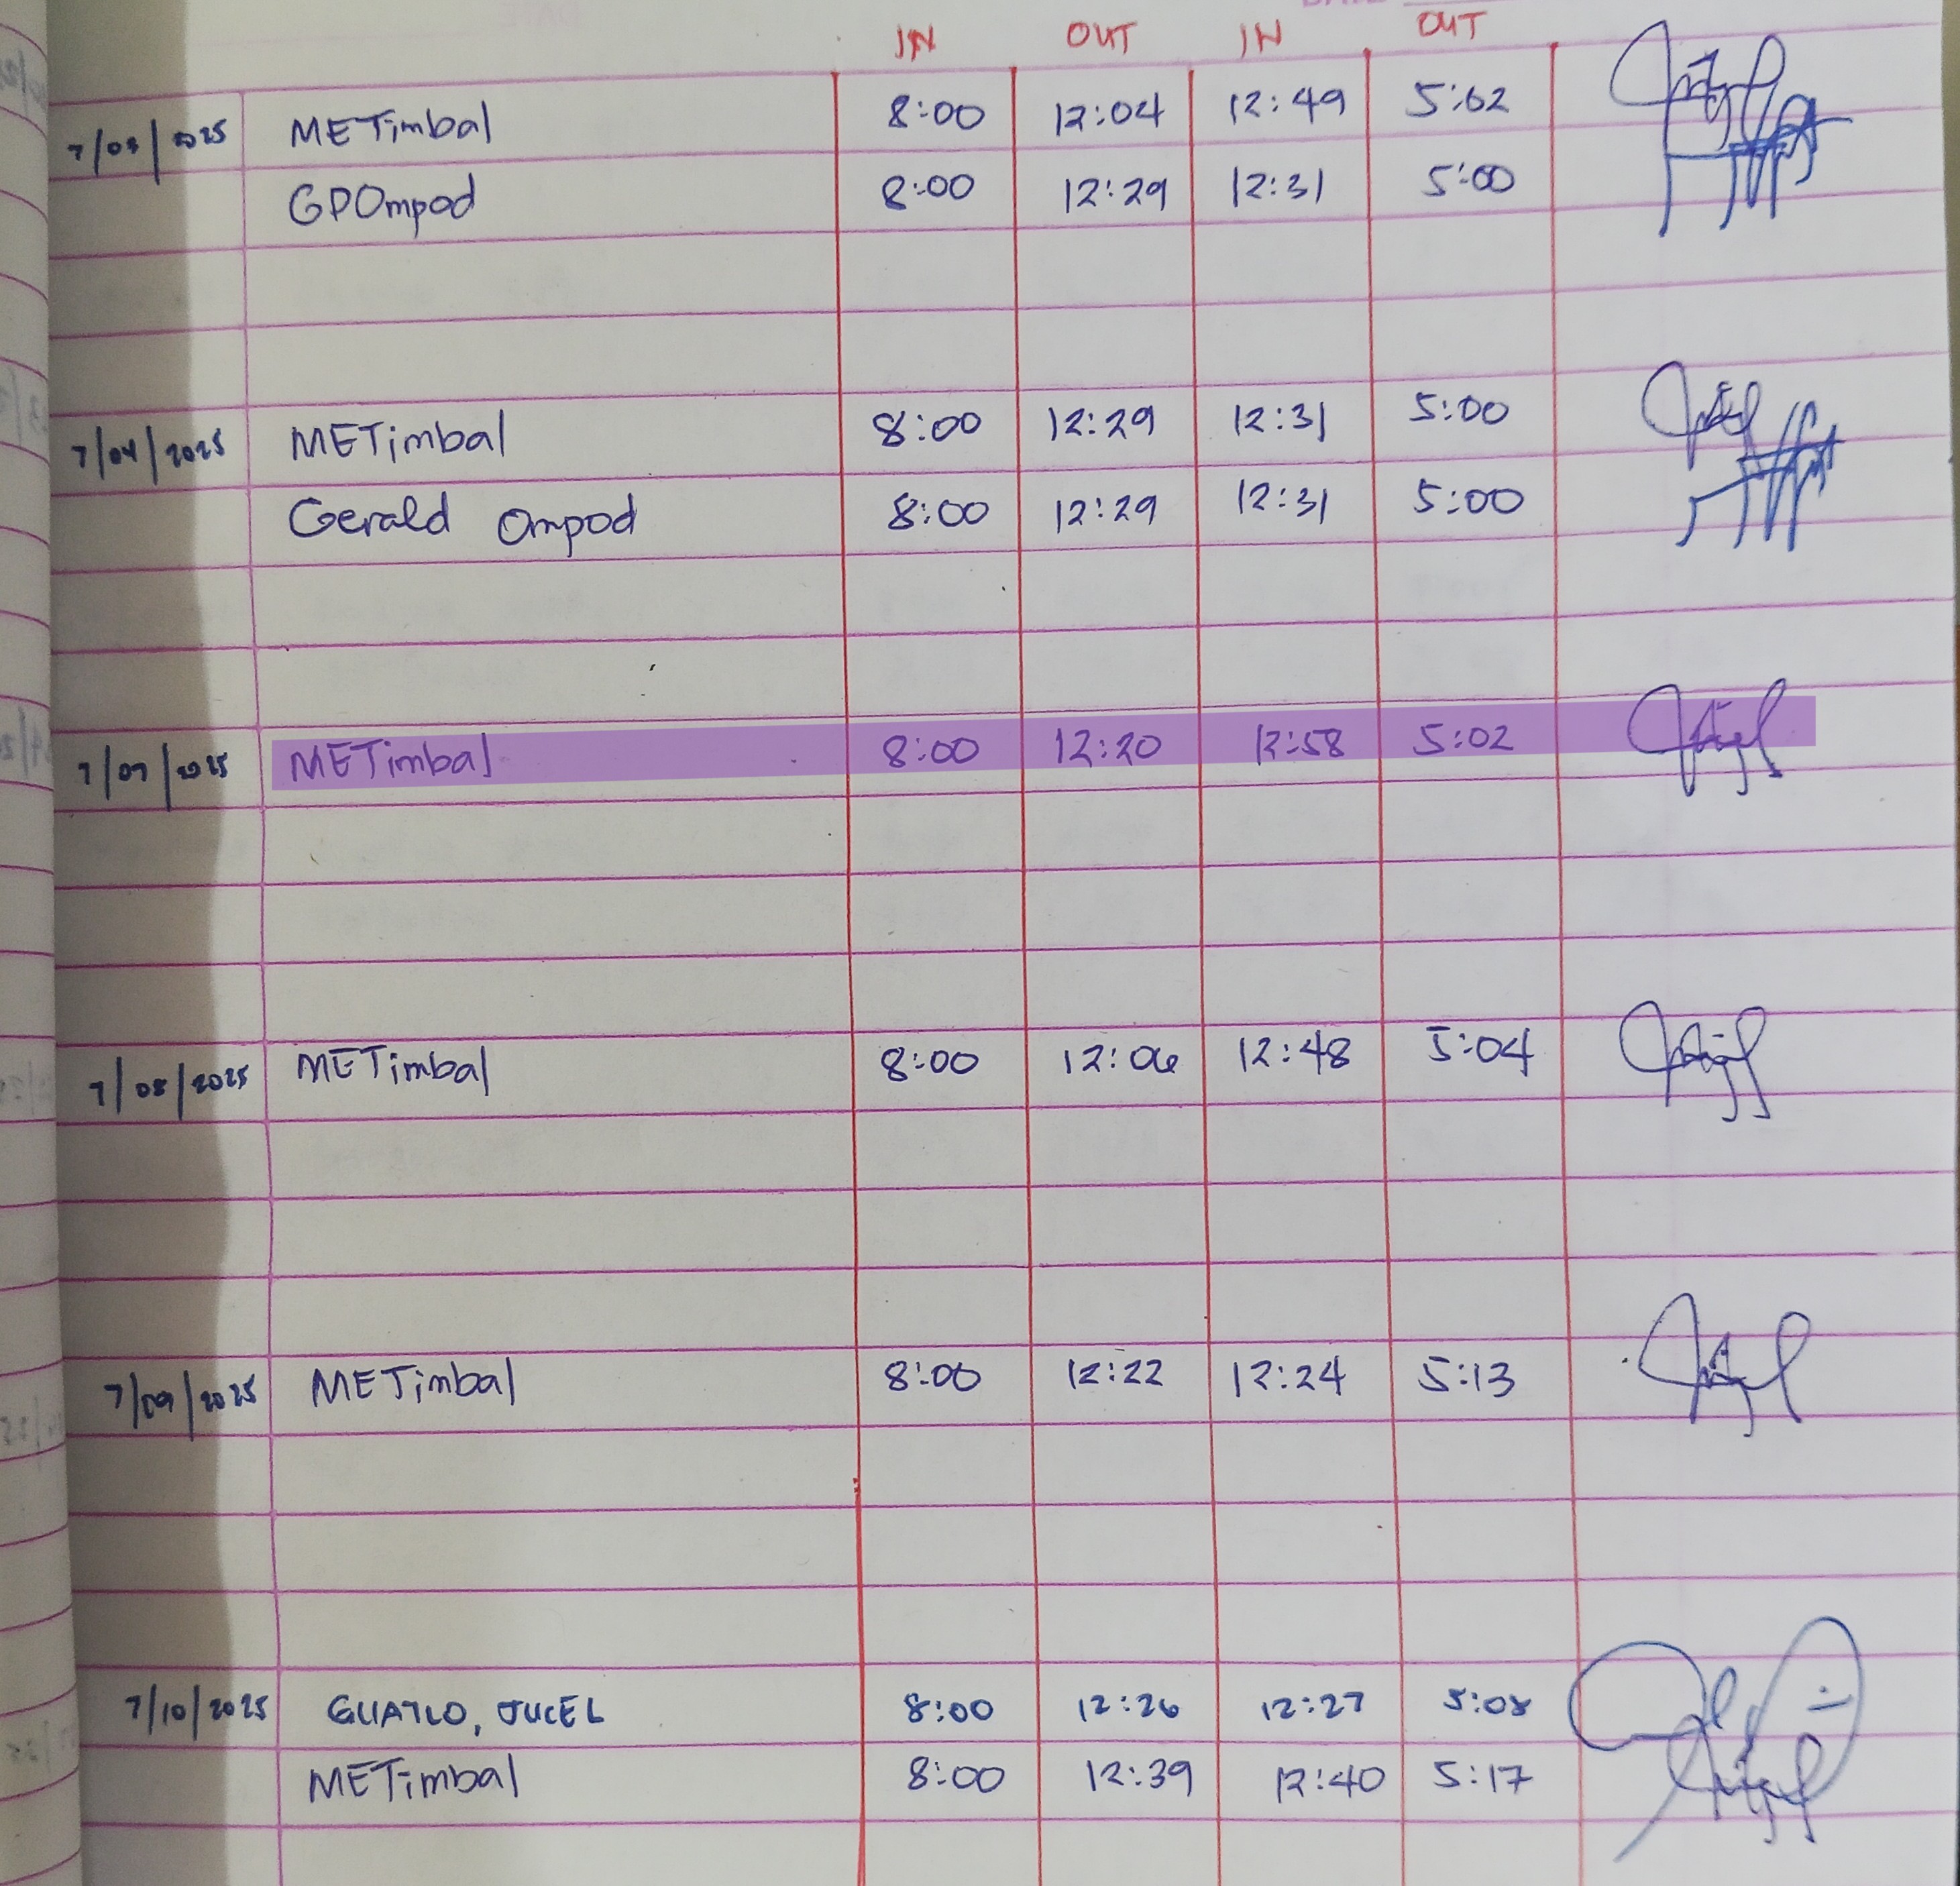 IN OUT IN OUT
7/03/2025 METimbal 8:00 12:04 12:49 5:02
GPOmpod 8:00 12:29 12:31 5:00
7/04/2025 METimbal 8:00 12:29 12:31 5:00
Gerald Ompod 8:00 12:29 12:31 5:00
7/07/2025 METimbal 8:00 12:20 12:58 5:02
7/08/2025 METimbal 8:00 12:06 12:48 5:04
7/09/2025 METimbal 8:00 12:22 12:24 5:13
7/10/2025 GUATLO, JUCEL 8:00 12:26 12:27 5:08
METimbal 8:00 12:39 12:40 5:17